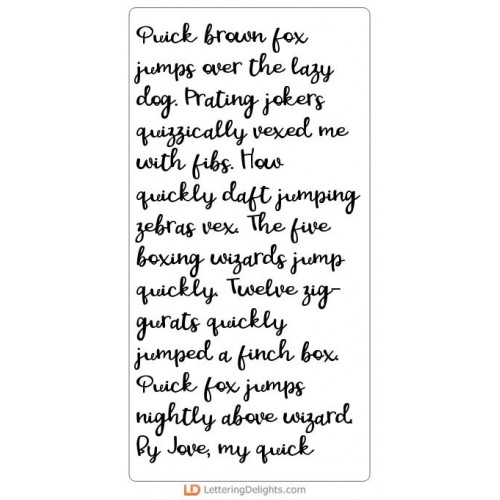 Quick brown fox
jumps over the lazy
dog. Prating jokers
quizzically vexed me
with fibs. How
quickly daft jumping
zebras vex. The five
boxing wizards jump
quickly. Twelve zig-
gurats quickly
jumped a finch box.
Quick fox jumps
nightly above wizard.
By Jove, my quick
LD LetteringDelights.com